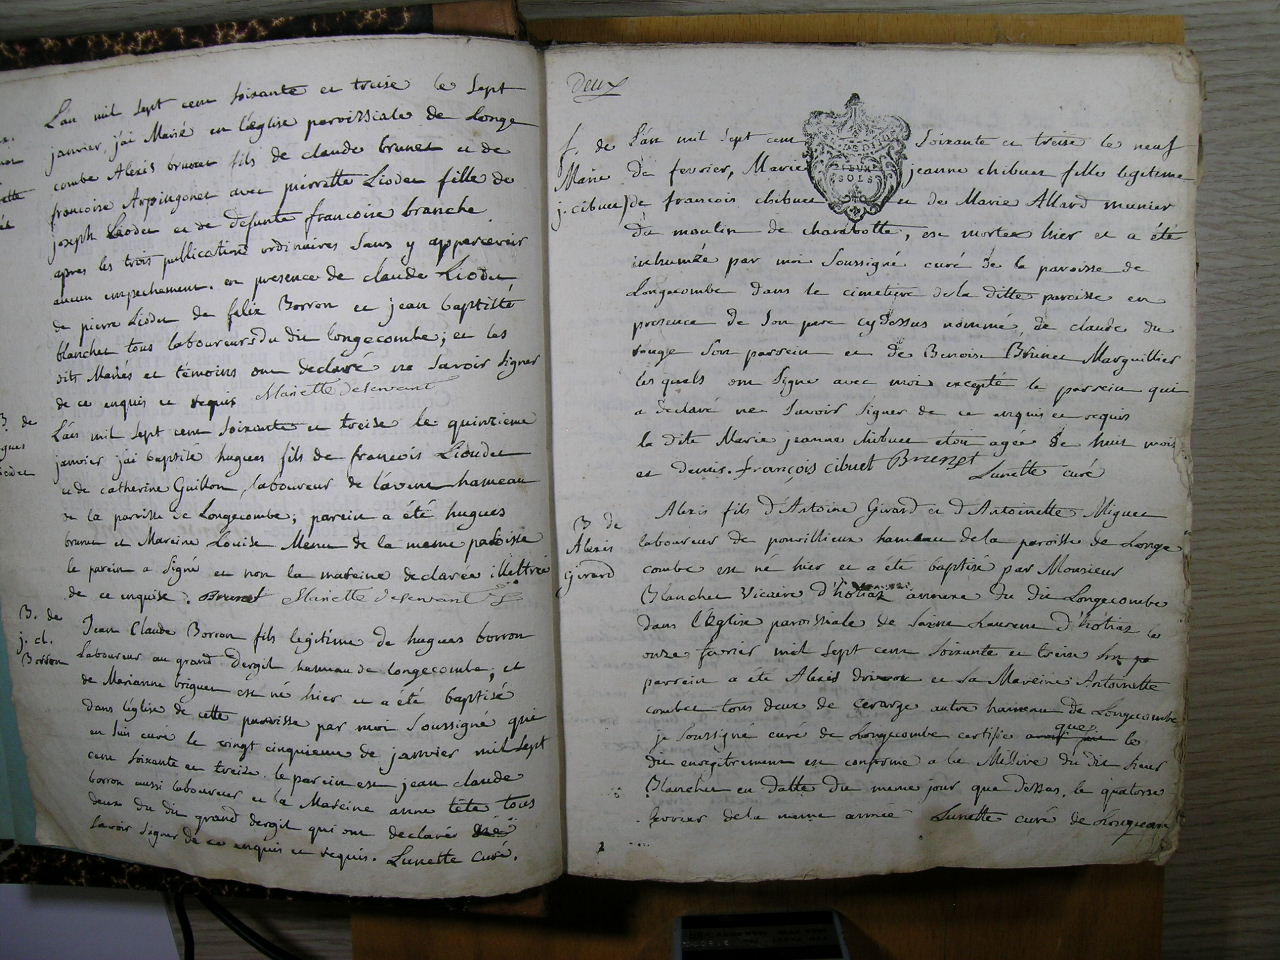 L'an mil sept cent soixante et treise le sept
janvier, j'ai Marié en l'eglise paroissiale de Longe
combe Alexis brunet fils de claude brunet et de
francoise Arpingonet avec pierrette Liodet fille de
joseph Liodet et de defunte francoise branche
apres les trois publications ordinaires sans y appercevoir
aucun empechement. en presence de claude Liodet
de pierre Liodet de felix Borron et jean baptiste
blanchet tous laboureurs du dit longecombe; et les
dits Mariés et témoins ont declaré ne savoir signer
de ce enquis et requis Mariette deservant
B. de
L'an mil sept cent soixante et treise le quinzieme
janvier j'ai baptisé hugues fils de francois Lioudet
et de catherine Guillon, laboureur de hameau
de la paroisse de Longecombe; parein a été hugues
brunet et Mareine Louise Menu de la meme paroisse
le parein a signé et non la mareine declarée illettrée
de ce enquise. Brunet Mariette deservant
B. de
j. cl.
Borron
Jean Claude Borron fils legitime de hugues borron
Laboureur au grand dergit hameau de longecombe, et
de Marianne briguet est né hier et a été baptisé
dans l'eglise de cette paroisse par moi soussigné qui
en suis curé le vingt cinquieme de janvier mil sept
cent soixante et treize. le parein est jean claude
borron aussi laboureur et la Mareine anne tête tous
deux du dit grand dergit qui ont declarés
savoir signer de ce enquis et requis. Lunette curé.
deux
f. de
Marie
j. cibuet
L'an mil sept cent soixante et treise le neuf
de fevrier, Marie jeanne chibuet fille legitime
de francois chibuet et de Marie Allard munier
du moulin de charabotte, est morte hier et a été
inhumée par moi soussigné curé de la paroisse de
Longecombe dans le cimetiere de la ditte paroisse en
presence de son pere cydessus nommé, de claude du
rouge son parrein et de Benoit Brunet Marguillier
les quels ont signe avec moi excepté le parrein qui
a declaré ne savoir signer de ce enquis et requis
la dite Marie jeanne chibuet etoit agée de huit mois
et demis. françois cibuet Brunet Lunette curé
B de
Alexis
Girard
Alexis fils d'Antoine Girard et d'Antoinette Miguet
laboureur de pouvillieux hameau de la paroisse de Longe
combe est né hier et a été baptisé par Monsieur
Blanchet vicaire d'hotiaz annexe du dit Longecombe
dans l'Eglise paroissiale de saint Laurent d'hotiaz le
onze fevrier mil sept cent soixante et treise
parrein a été Alexis et sa Mareine Antoinette
combet tous deux de cerarge autre hameau de Longecombe
je soussigné curé de Longecombe certifie que le
dit enregitrement est conforme a la Missive du dit sieur
Blanchet en datte du meme jour que dessus. le quatorse
fevrier de la meme année Lunette curé de